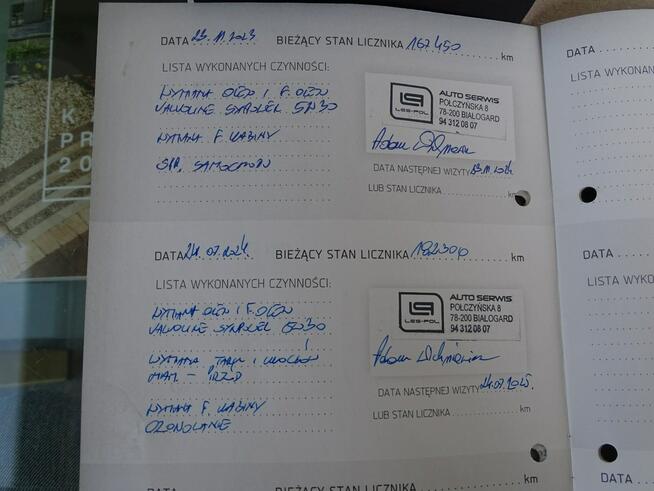 DATA 23.11.2023 BIEŻĄCY STAN LICZNIKA 162450 km
LISTA WYKONANYCH CZYNNOŚCI:
WYMIANA OLEJU I F. OLEJU
VALVOLINE SYNPOWER 5W30
WYMIANA F. KABINY
SPR. SAMOCHODU
LGP
LES-POL
AUTO SERWIS
POŁCZYŃSKA 8
78-200 BIAŁOGARD
94 312 08 07
Adam
DATA NASTĘPNEJ WIZYTY 23.11.2024
LUB STAN LICZNIKA km
DATA 24.07.2024 BIEŻĄCY STAN LICZNIKA 192300 km
LISTA WYKONANYCH CZYNNOŚCI:
WYMIANA OLEJU I F. OLEJU
VALVOLINE SYNPOWER 5W30
WYMIANA TARCZ I KLOCKÓW
HAM - PRZÓD
WYMIANA F. KABINY
OZONOWANIE
LES-POL
AUTO SERWIS
POŁCZYŃSKA 8
78-200 BIAŁOGARD
94 312 08 07
Adam
DATA NASTĘPNEJ WIZYTY 24.07.2025.
LUB STAN LICZNIKA km
DATA BIEŻĄCY STAN LICZNIKA km
DATA
LISTA WYKONAN
DATA
LISTA WYKO
DATA
K
PR
20